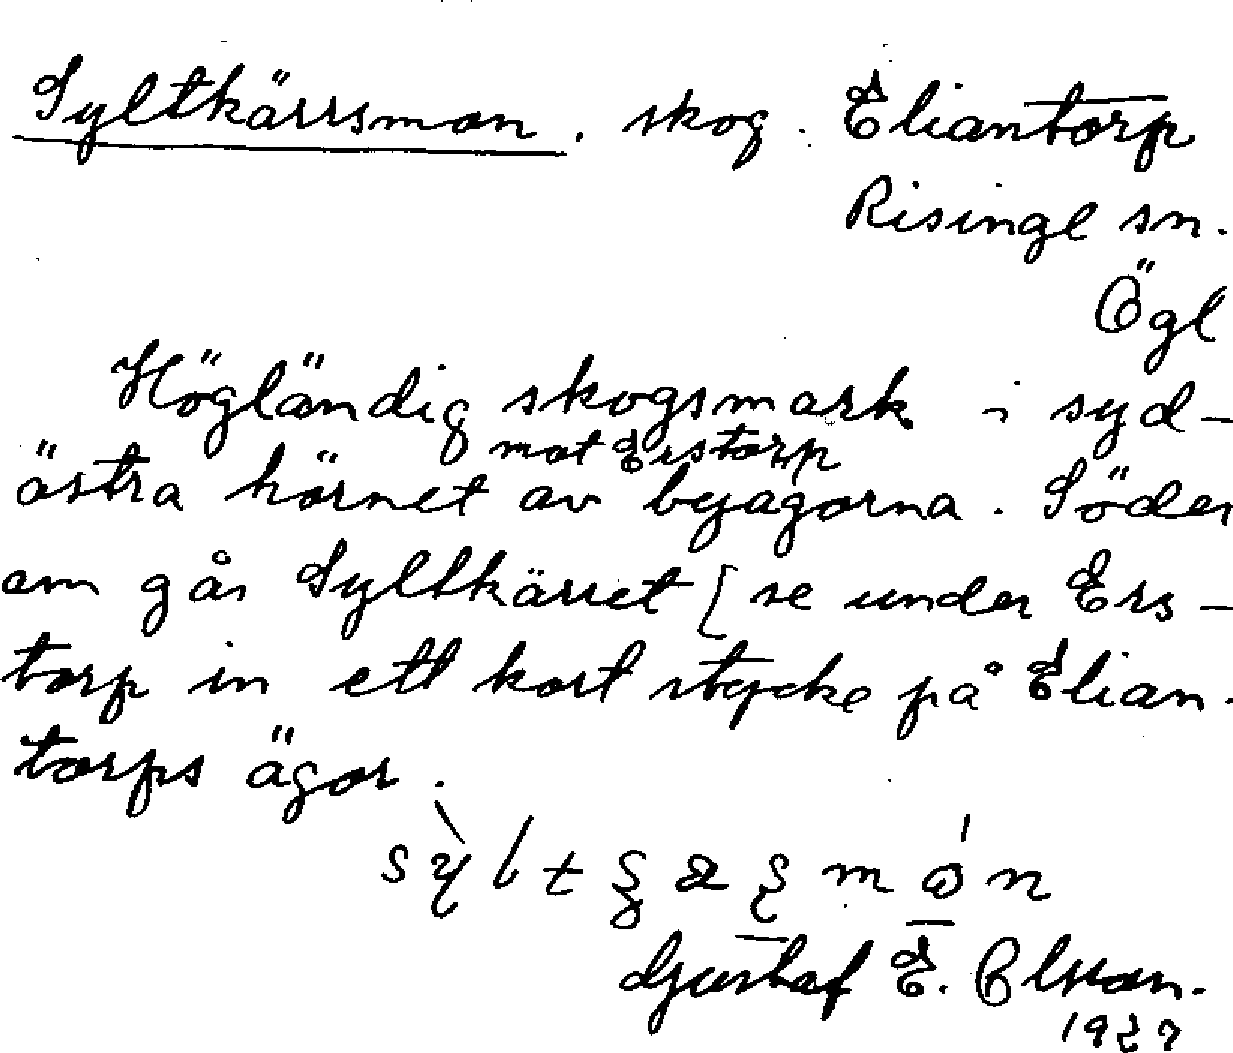 Syltkärrsmon. skog. Eliantorp
Risinge sn.
Ögl
Högländig skogsmark i syd-
mot Erstorp
östra hörnet av byägorna. Söder
om går Syltkärret [se under Ers-
torp in ett kort stycke på Elian-
torps ägor.
Gustaf E. Olsson.
1927